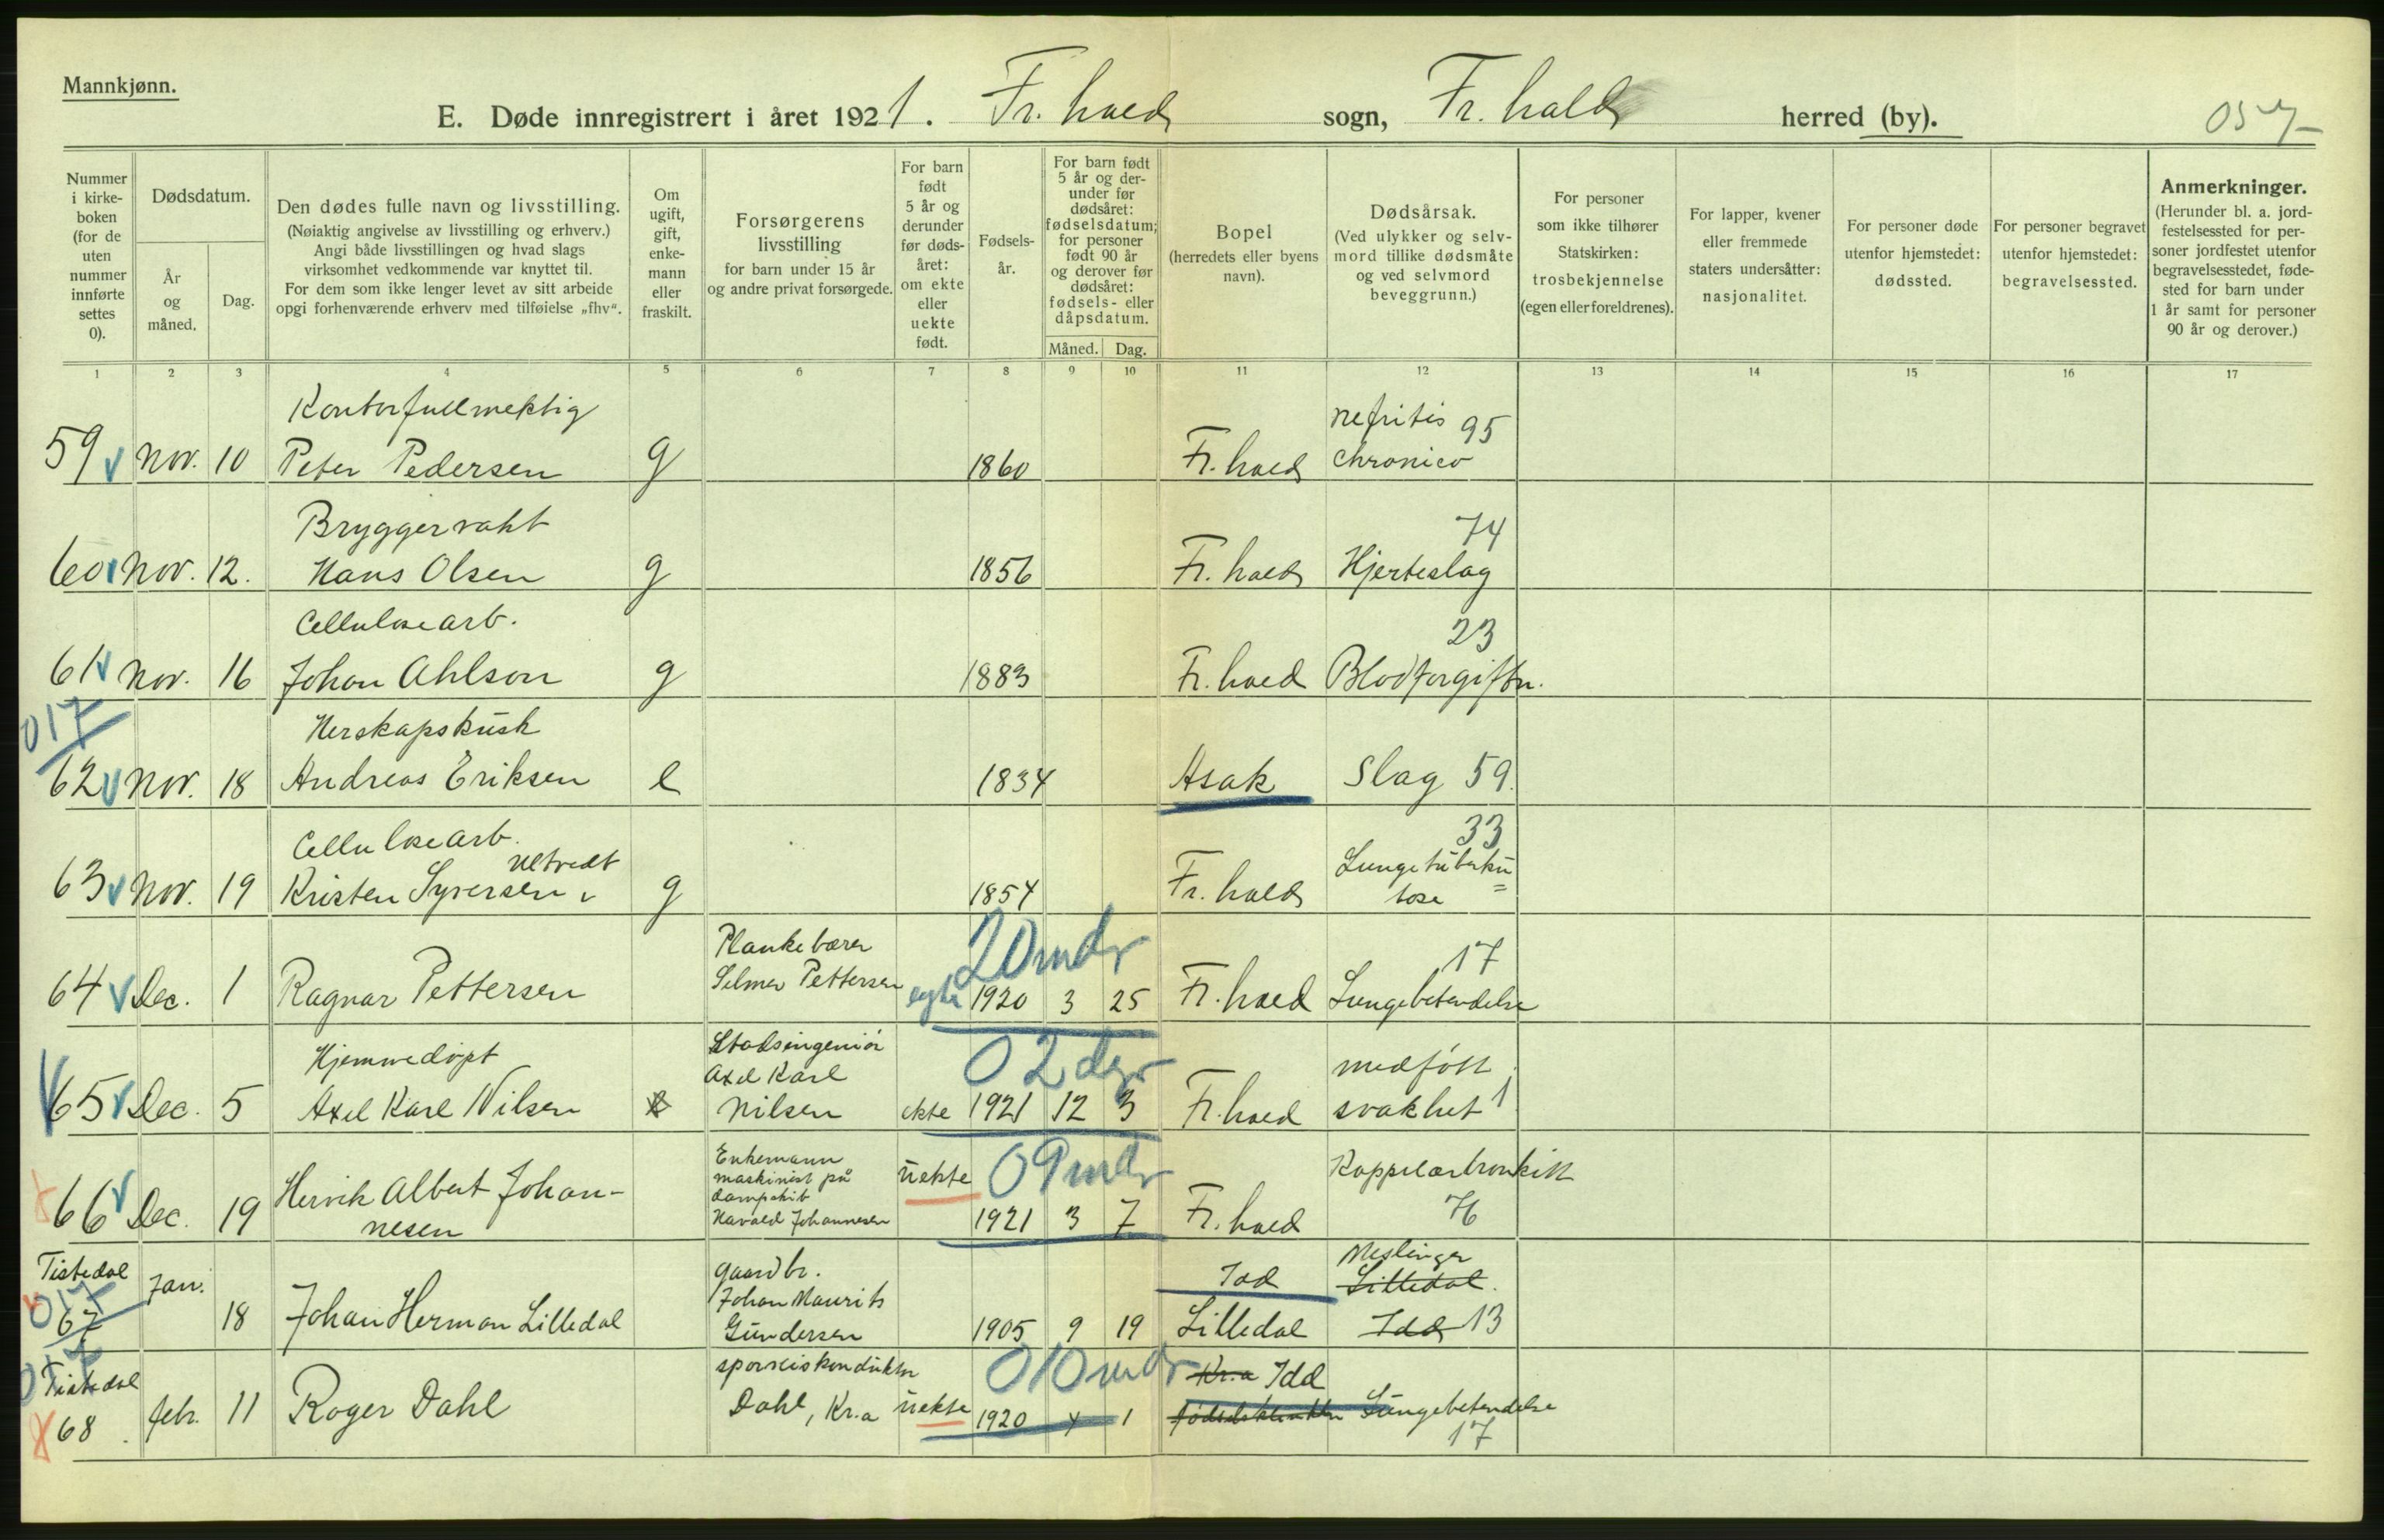 Mannkjønn.
E. Døde innregistrert i året 1921. Fr.hald sogn, Fr.hald herred (by).
Nummer i kirke-boken (for de uten nummer innførte settes 0).
Dødsdatum.
År og måned.
Dag.
Den dødes fulle navn og livsstilling.
(Nøiaktig angivelse av livsstilling og erhverv.)
Angi både livsstillingen og hvad slags
virksomhet vedkommende var knyttet til.
For dem som ikke lenger levet av sitt arbeide
opgi forhenværende erhverv med tilføielse „fhv“.
Om ugift, gift, enke-mann eller fraskilt.
Forsørgerens livsstilling
for barn under 15 år
og andre privat forsørgede.
For barn født 5 år og derunder før døds-året: om ekte eller uekte født.
Fødsels-år.
For barn født 5 år og der-under før dødsåret: fødselsdatum; for personer født 90 år og derover før dødsåret: fødsels- eller dåpsdatum.
Måned.
Dag.
Bopel
(herredets eller byens navn).
Dødsårsak.
(Ved ulykker og selv-mord tillike dødsmåte og ved selvmord beveggrunn.)
For personer som ikke tilhører Statskirken: trosbekjennelse (egen eller foreldrenes).
For lapper, kvener eller fremmede staters undersåtter: nasjonalitet.
For personer døde utenfor hjemstedet: dødssted.
For personer begravet utenfor hjemstedet: begravelsessted.
Anmerkninger.
(Herunder bl. a. jord-festelsessted for per-soner jordfestet utenfor begravelsesstedet, føde-sted for barn under 1 år samt for personer 90 år og derover.)
1 2 3 4 5 6 7 8 9 10 11 12 13 14 15 16 17
Kontorfullmektig
nefritis 95
59 Nov. 10 Peter Pedersen g 1860 Fr.hald chronica
Bryggervakt
74
60 Nov. 12. Hans Olsen g 1856 Fr.hald Hjerteslag
Cellulosearb.
23
61 Nov. 16 Johan Ahlson g 1883 Fr.hald Blodforgiftn.
017
Herskapskusk
62 Nov. 18 Andreas Eriksen e 1834 Asak Slag 59.
Cellulosearb.
33
63 Nov. 19 Kristen Syversen, g 1854 Fr.hald Lungetuberku=
lose
Plankebærer
20 mdr
17
Selmer Pettersen
64 Dec. 1 Ragnar Pettersen egte 1920 3 25 Fr.hald Lungebetendelse
Stadsingeniør
Hjemmedøpt
Axel Karl
02 dgr
medfött
65 Dec. 5 Axel Karl Nilsen Nilsen ekte 1921 12 3 Fr.hald svakhet 1
Enkemann
maskinist på
dampskib
uekte
09 mdr
Kappilærbronkitt
66 Dec. 19 Henrik Albert Johan-
nesen
Havald Johannesen 1921 3 7 Fr.hald
76
Tistedal
017
gaardbr.
Johan Maurits
Idd
Meslinger
Lilledal.
67 Jan. 18 Johan Herman Lilledal Gundersen 1905 9 19 Lilledal Idd 13
017
Tistedal
010 mdr
Kr.a Idd
68 febr. 11 Roger Dahl Dahl, Kr.a uekte 1920 4 1 Lungebetendelse
17